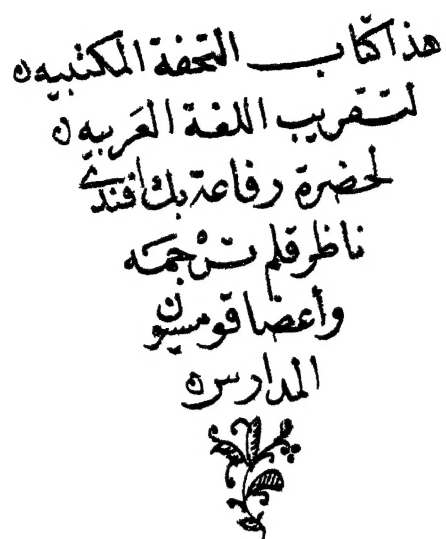 هذا كتاب التحفة المكتبيه
لتقريب اللغة العربيه
لحضرة رفاعة بك افندي
ناظر قلم ترجمه
وأعضا قومسيون
المدارس